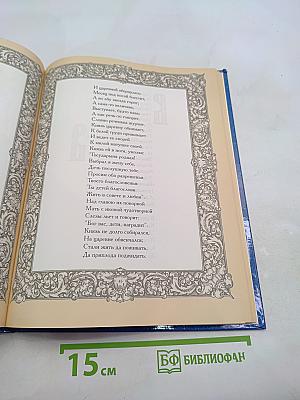 И царевной обернулась:
Месяц под косой блестит,
А во лбу звезда горит;
А сама-то величава,
Выступает, будто пава;
А как речь-то говорит,
Словно реченька журчит.
Князь царевну обнимает,
К белой груди прижимает
И ведет ее скорей
К милой матушке своей.
Князь ей в ноги, умоляя:
"Государыня родная!
Выбрал я жену себе,
Дочь послушную тебе,
Просим оба разрешенья,
Твоего благословенья:
Ты детей благослови
Жить в совете и любви".
Над главою их покорной
Мать с иконой чудотворной
Слезы льет и говорит:
"Бог вас, дети, наградит".
Князь не долго собирался,
На царевне обвенчался;
Стали жить да поживать,
Да приплода поджидать.
15 см
БФ БИБЛИОФАН